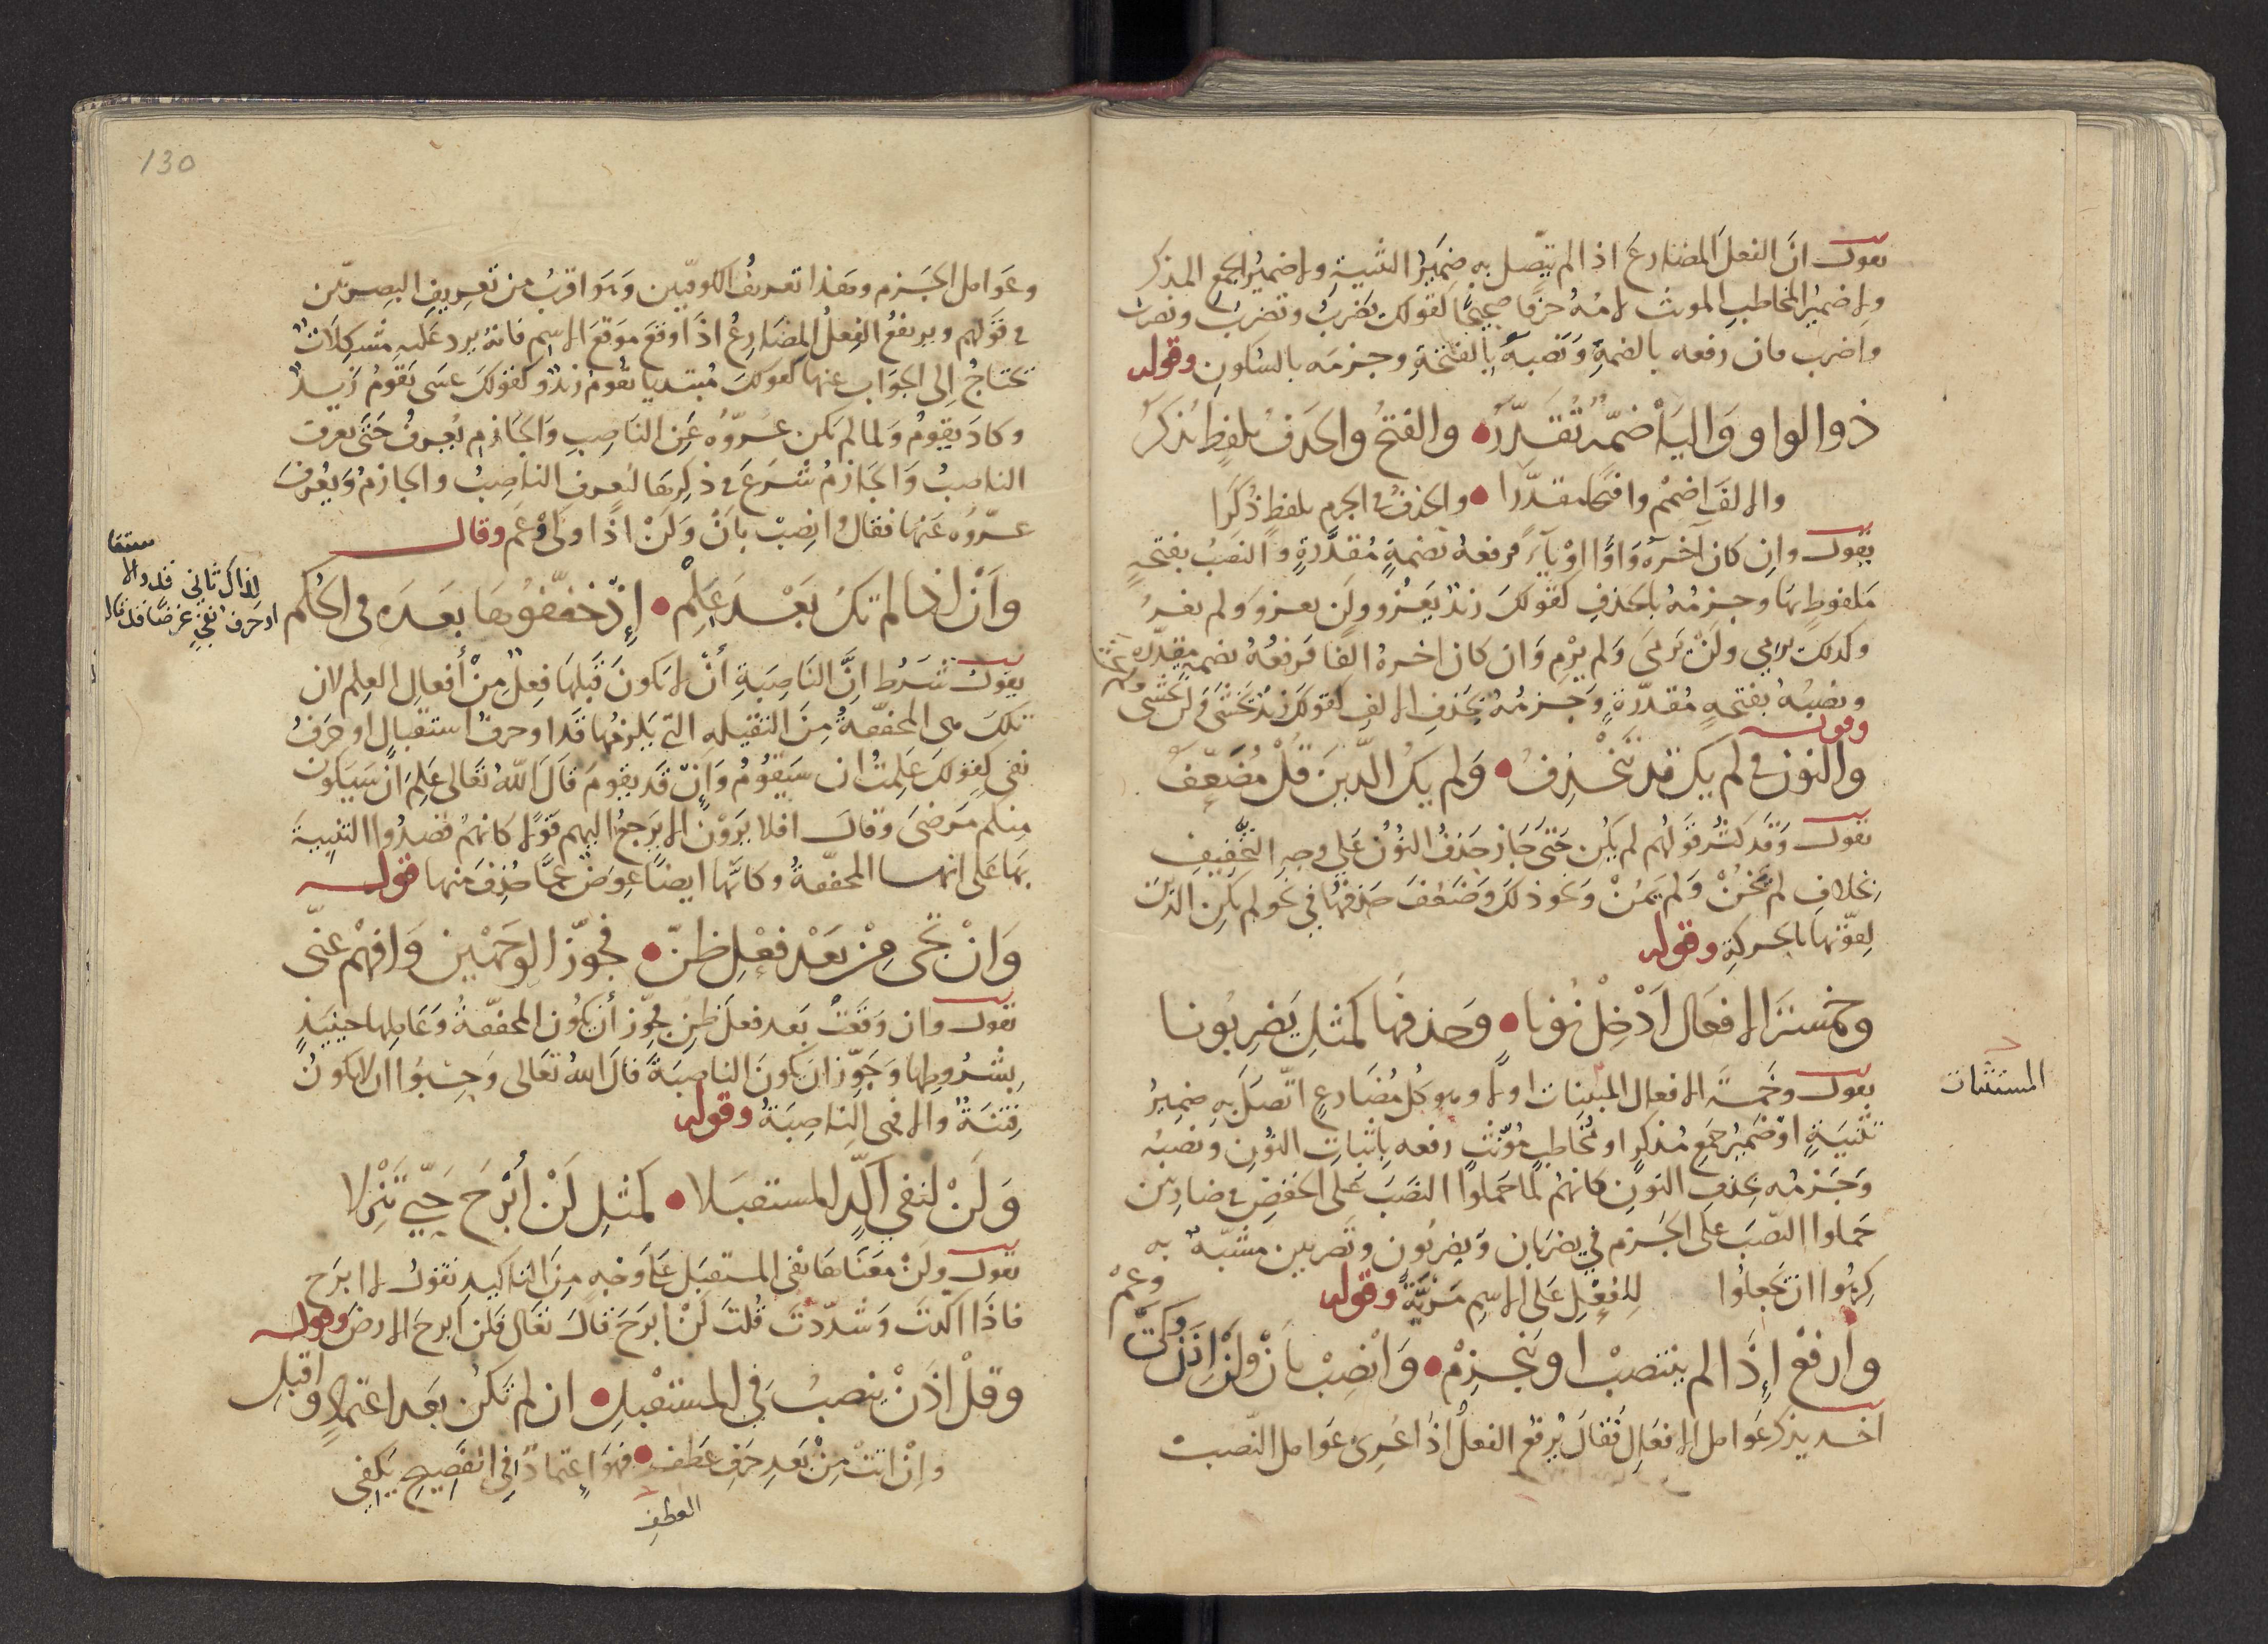 يقول ان الفعل المضارع اذا لم يتصل به ضمير التثنية ولا ضمير الجمع المذكر
ولا ضمير المخاطب المونث لامه حرفا صحيحا كقولك يضرب وتضرب ونضرب
واضرب فان رفعه بالضمة ونصبه بالفتحة وجزمه بالسكون وقوله
ذو الواو والياء ضمه تقدر والفتح والحذف بلفظ يذكر
والالف اضمم وافتحا مقدرا والحذف في الجزم بلفظ ذكرا
يقول وان كان آخره واوا او ياء فرفعه بضمة مقدرة والنصب بفتحة
ملفوظ بها وجزمه بالحذف كقولك زيد يغزو ولن يغزو ولم يغز
وكذلك يرمي ولن يرمي ولم يرم وان كان اخره الفا فرفعه بضمة مقدره
ونصبه بفتحة مقدرة وجزمه بحذف الالف كقولك زيد يخشى ولن يخشى ولم يخش
وقوله
والنون في لم يكن قد تنحذف ولم يك الذين قل مضعف
يقول وقد كثر قولهم لم يكن حتى جاز حذف النون على وجه التخفيف
بخلاف لم يخن ولم يمن ونحو ذلك وضعف حذفها في نحو لم يكن الذين
لقوتها بالحركة وقوله
وخمسة الافعال ادخل نونا وحذفها كمثل يضربونا
يقول وخمسة الافعال المبينات اولا وهو كل مضارع اتصل به ضمير
المستثنات
تثنية او ضمير جمع مذكر او مخاطب مؤنث رفعه باثبات النون ونصبه
وجزمه بحذف النون كانهم لما حملوا النصب على الخفض في ضاربين
حملوا النصب على الجزم في يضربان ويضربون وتضربين مشبه به
كرهوا ان يجعلوا للفعل على الاسم مزية وقوله
وارفع إذا لم ينتصب او ينجزم وانصب بان ولن اذن وكي وعم
اخذ يذكر عوامل الافعال فقال يرفع الفعل اذا عري عوامل النصب
130
وعوامل الجزم وهذا تعريف الكوفيين وهو اقرب من تعريف البصريين
في قولهم ويرتفع الفعل المضارع اذا وقع موقع الاسم فانه يرد عليه مشكلات
تحتاج الى الجواب عنها كقولك مبتديا يقوم زيد وكقولك عسى يقوم زيد
وكاد يقوم ولما لم يكن عروه عن الناصب والجازم يعرف حتى يعرف
الناصب والجازم شرع في ذكرها لتعرف الناصب والجازم ويعرف
عروه عنها فقال وانصب بان ولن اذا وكي وعم وقال
وأن اذا لم تك بعد علم إذ خففوها بعده في الحكم
لذاك ثاني قد ولا
او حرف نفي عرضا قد قال
يقول شرط ان الناصبة أن لا يكون قبلها فعل من أفعال العلم لان
تلك هي المخففة من الثقيله التي يلزمها قد او حرف استقبال او حرف
نفي كقولك علمت ان سيقوم وان قد يقوم قال الله تعالى علم ان سيكون
منكم مرضى وقال افلا يرون الا يرجع اليهم قولا كانهم قصدوا التنبيه
بها على انها المخففة وكانها ايضا عوض عما حذف منها قوله
وان تجى من بعد فعل ظن فجوز الوجهين وافهم عني
يقول وان وقعت بعد فعل ظن جوز أن يكون المخففة وعاملها حينيذ
بشروطها وجوز ان يكون الناصبة قال الله تعالى وحسبوا ان لا يكون
فتنة والا فهي الناصبة وقوله
ولن لنفي اكد المستقبلا كمثل لن أبرح حتى تنزلا
يقول ولن معناها نفي المستقبل على وجه من التاكيد تقول لا ابرح
فاذا اكدت وشددت قلت لن ابرح قال تعالى فلن ابرح الارض وقوله
وقل اذن ينصب في المستقبل ان لم تكن بعد اعتماد واقبل
وإن اتت من بعد حرف عطف فهو اعتماد في الفصيح يكفي
العطف